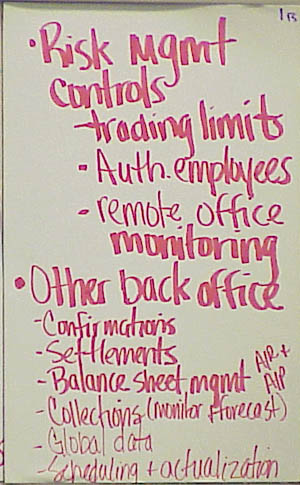 1B
• Risk mgmt
controls
- trading limits
- Auth. employees
- remote office
monitoring
• Other back office
- Confirmations
- Settlements
- Balance sheet mgmt A/R + A/P
- Collections (monitor + forecast)
- Global data
- Scheduling + actualization